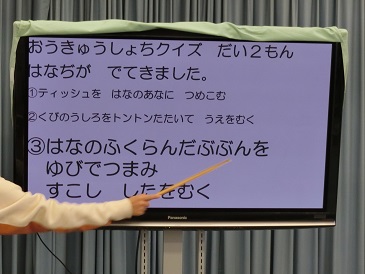 おうきゅうしょちクイズ　だい２もん
はなぢが　でてきました。
①ティッシュを　はなのあなに　つめこむ
②くびのうしろをトントンたたいて　うえをむく
③はなのふくらんだぶぶんを
ゆびでつまみ
すこし　したをむく
Panasonic